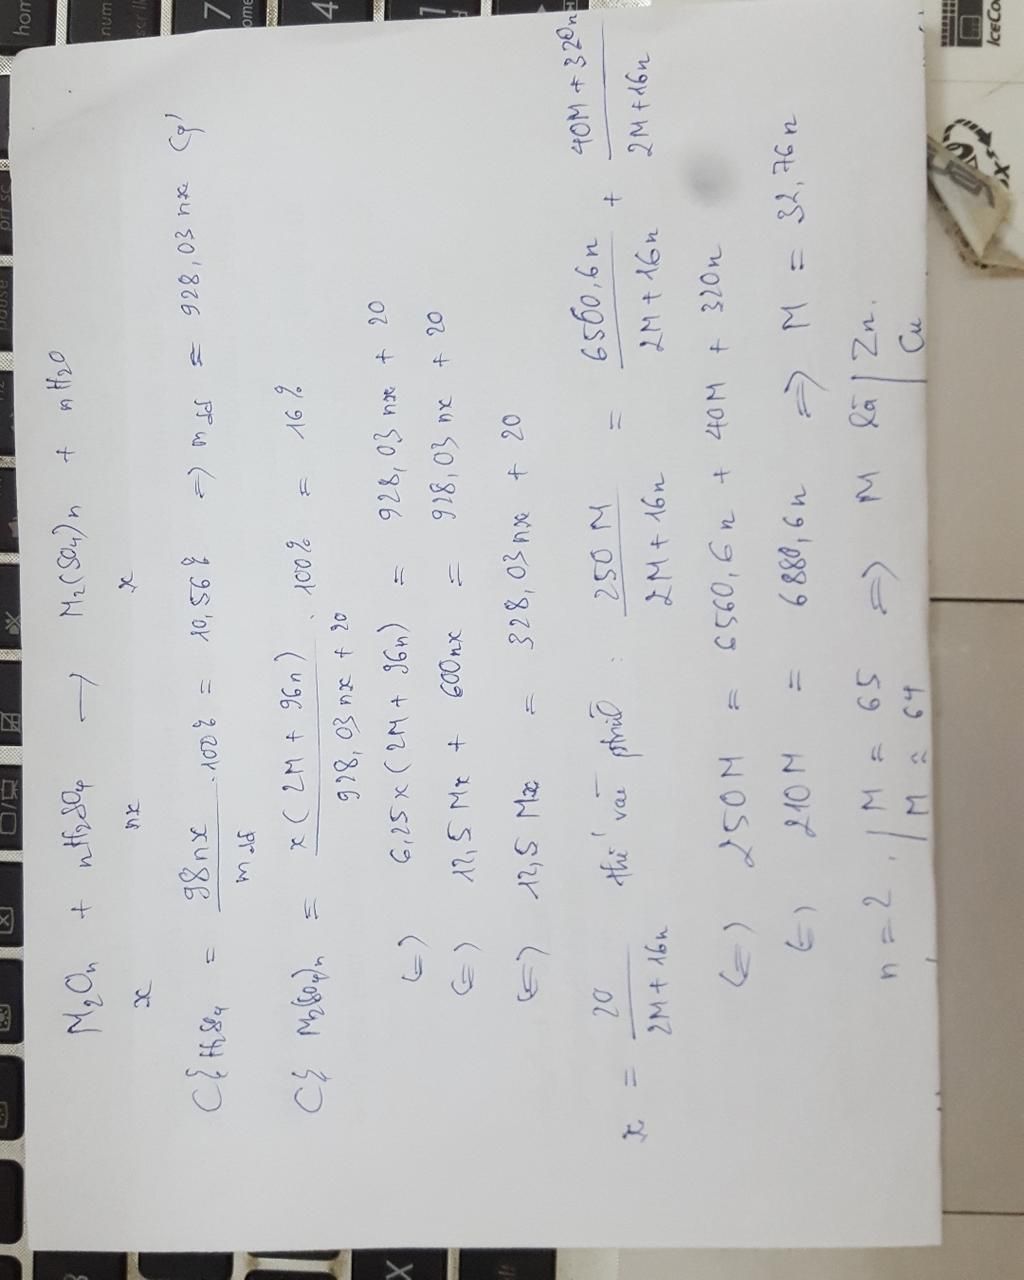 M₂Oₙ + nH₂SO₄ → M₂(SO₄)ₙ + nH₂O
x nx x
C% H₂SO₄ = 98nx / m dd . 100% = 10,56% => m dd = 928,03 nx (g)
C% M₂(SO₄)ₙ = x(2M + 96n) / 928,03 nx + 20 . 100% = 16%
<=> 6,25x(2M + 96n) = 928,03 nx + 20
<=> 12,5Mx + 600nx = 928,03 nx + 20
<=> 12,5 Mx = 328,03nx + 20
x = 20 / 2M + 16n thế vào ptrình : 250 M / 2M + 16n = 6560,6n / 2M + 16n + 40M + 320n / 2M + 16n
<=> 250M = 6560,6n + 40M + 320n
<=> 210M = 6880,6n => M = 32,76n
n = 2 , | M = 65 => M là | Zn.
| M ≈ 64 | Cu
home
num
scr lk
7
home
4
1
prt sc
pause
X
IceCo